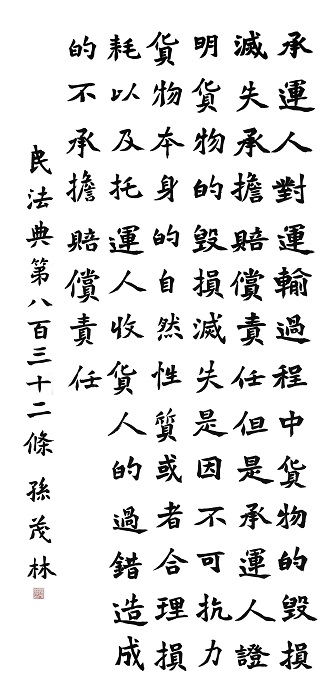 承運人對運輸過程中貨物的毀損
滅失承擔賠償責任但是承運人證
明貨物的毀損滅失是因不可抗力
貨物本身的自然性質或者合理損
耗以及托運人收貨人的過錯造成
的不承擔賠償責任
民法典第八百三十二條 孫茂林